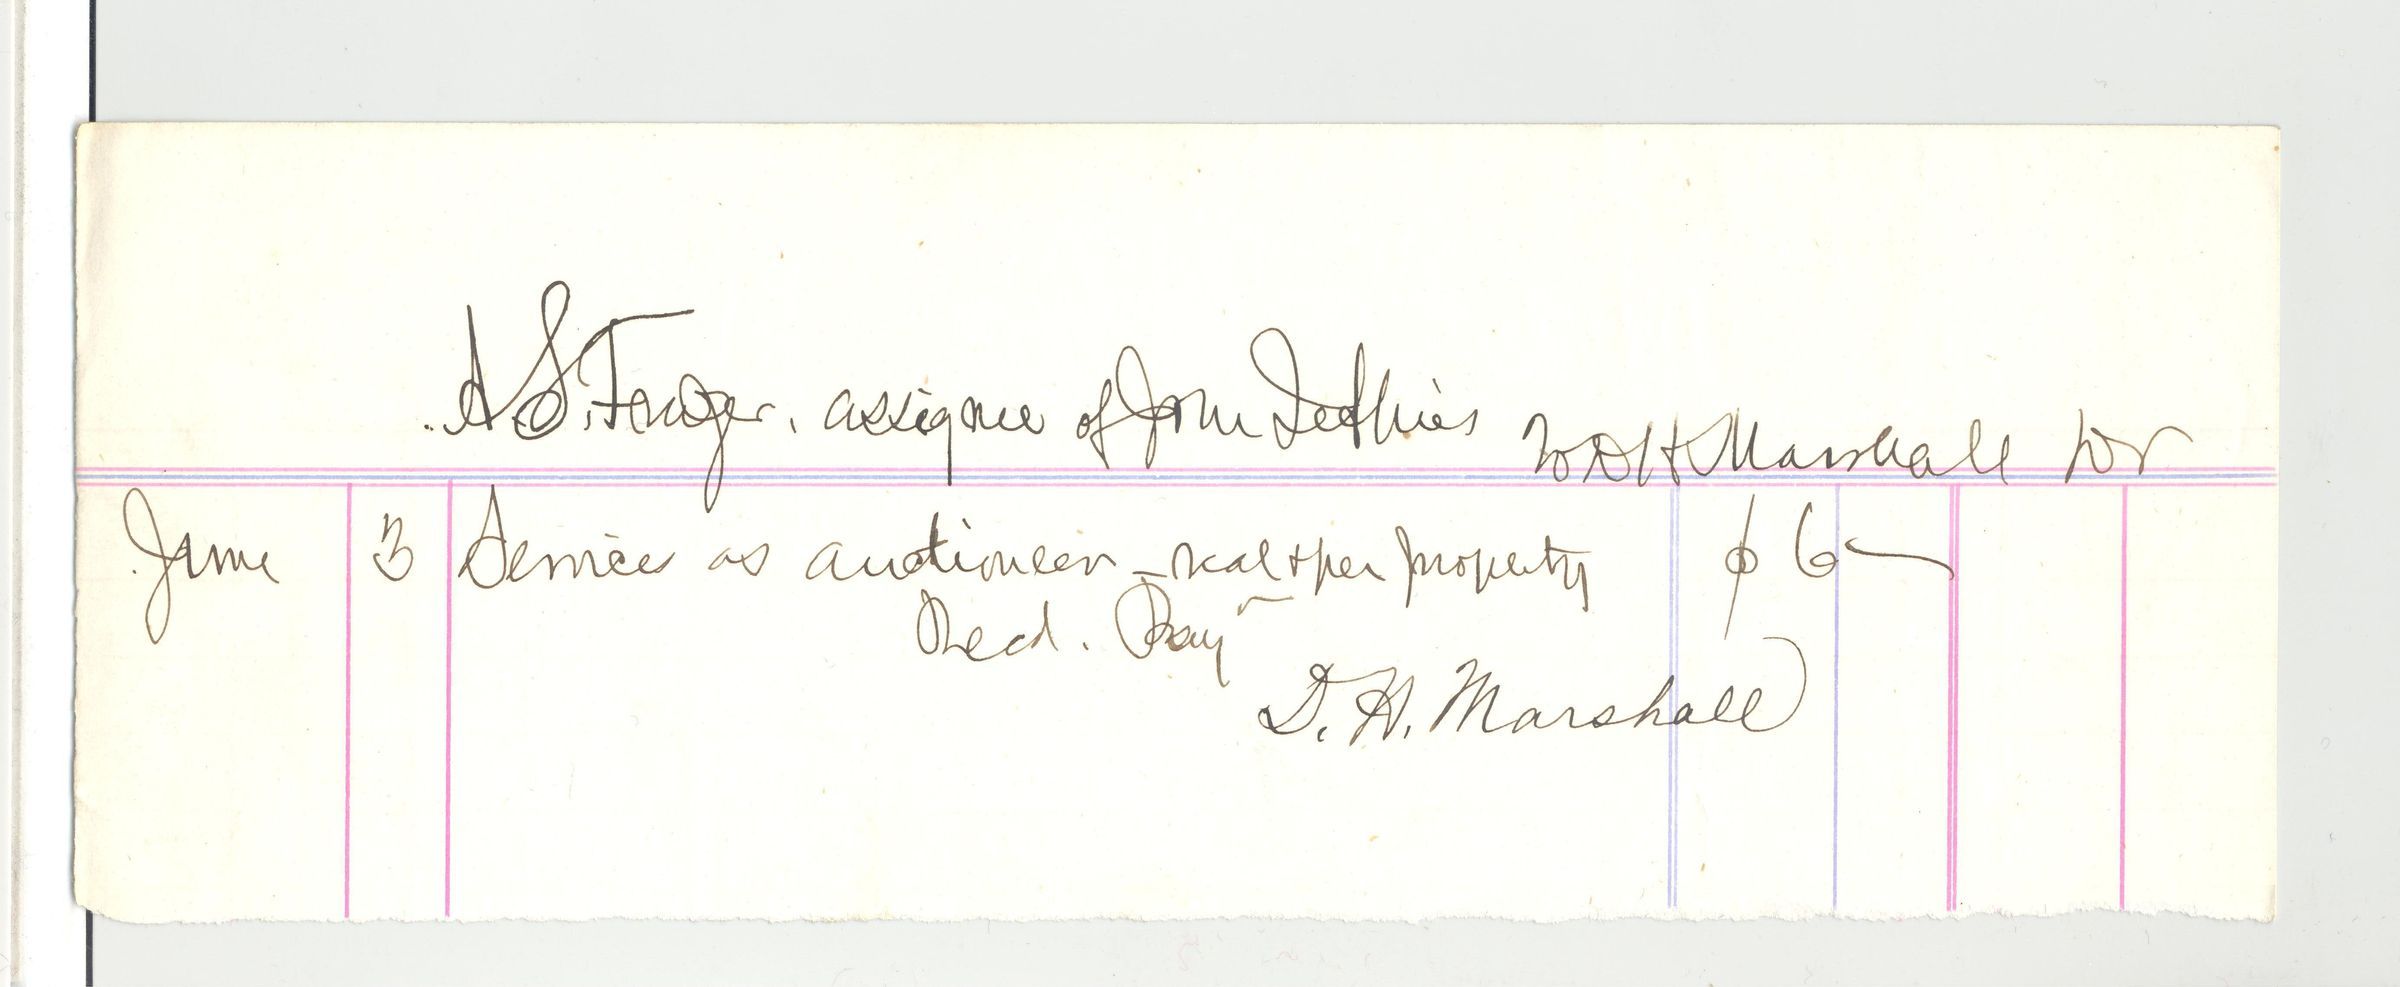 A. S. Frazer, assignee of John Jeffries To D H Marshall Dr
June 3 Services as auctioneer - real & per property $ 6 —
Recd. Pay
D. H. Marshall